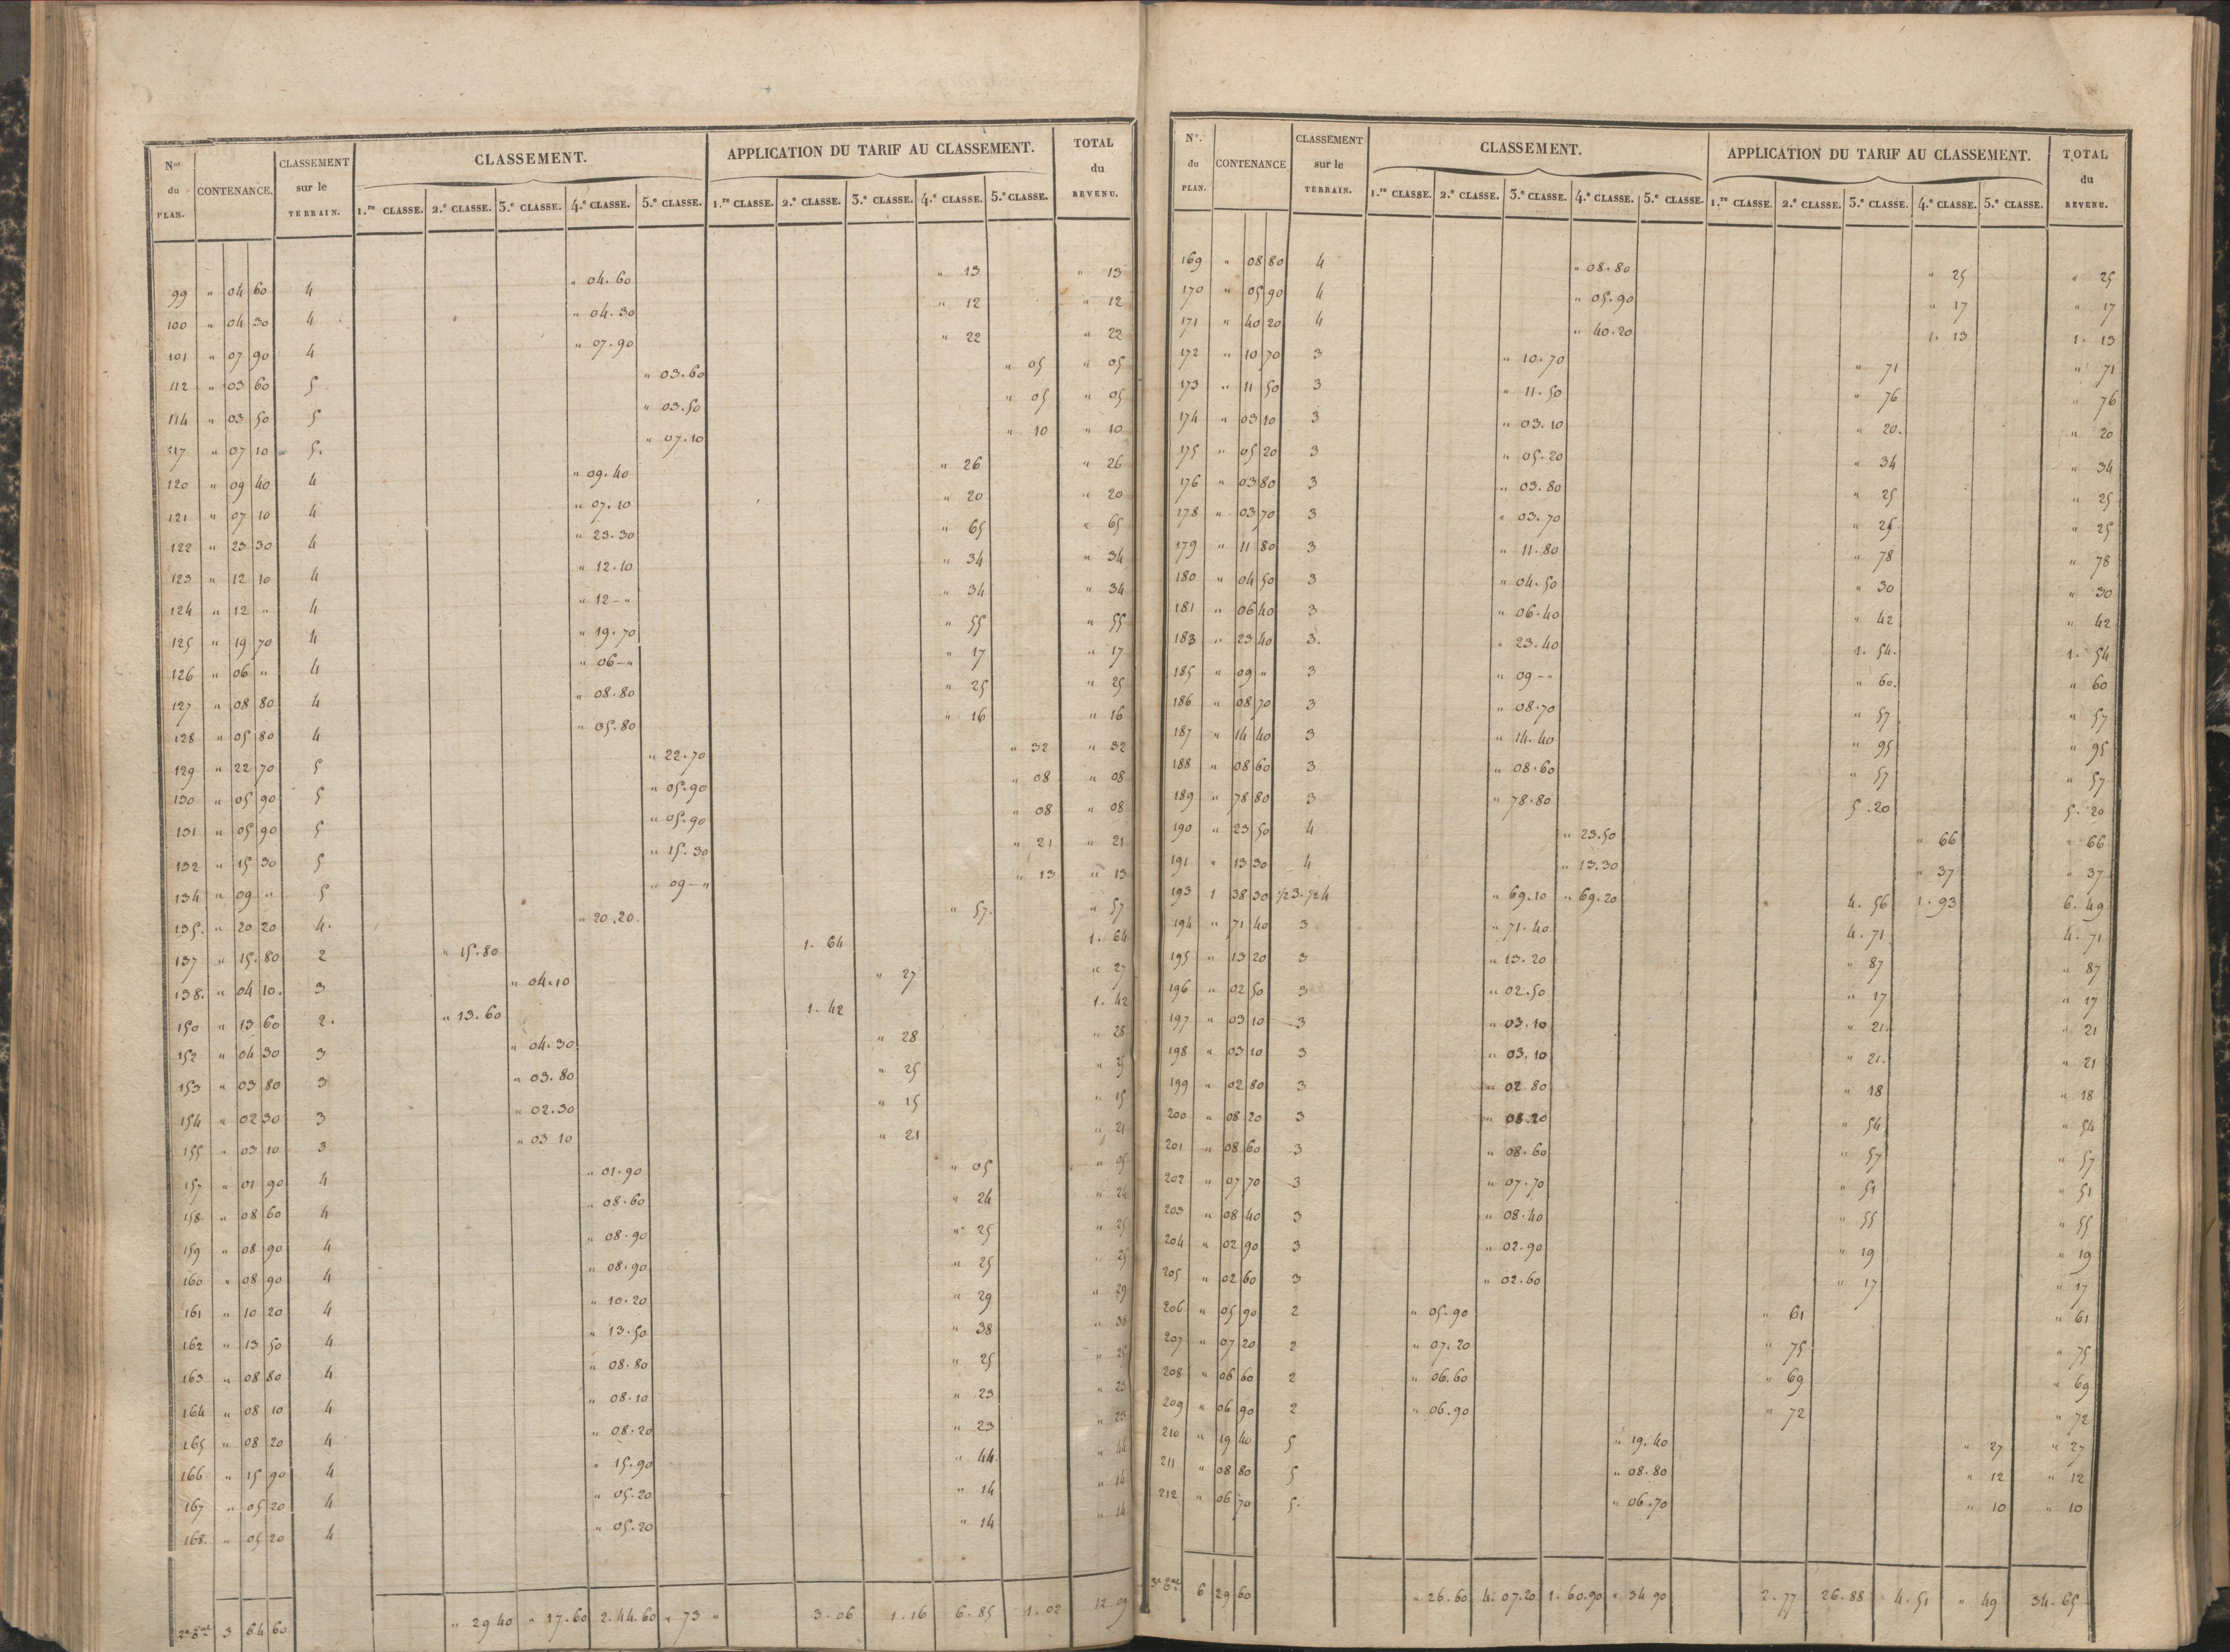 Nos du PLAN. CONTENANCE. CLASSEMENT sur le TERRAIN. CLASSEMENT. APPLICATION DU TARIF AU CLASSEMENT. TOTAL du REVENU.
1.re CLASSE. 2.e CLASSE. 3.e CLASSE. 4.e CLASSE. 5.e CLASSE. 1.re CLASSE. 2.e CLASSE. 3.e CLASSE. 4.e CLASSE. 5.e CLASSE.
99 " 04 60 4 " 04.60 " 13 " 13
100 " 04 30 4 " 04.30 " 12 " 12
101 " 07 90 4 " 07.90 " 22 " 22
112 " 03 60 5 " 03.60 " 05 " 05
114 " 03 50 5 " 03.50 " 05 " 05
117 " 07 10 5. " 07.10 " 10 " 10
120 " 09 40 4 " 09.40 " 26 " 26
121 " 07 10 4 " 07.10 " 20 " 20
122 " 23 30 4 " 23.30 " 65 " 65
123 " 12 10 4 " 12.10 " 34 " 34
124 " 12 " 4 " 12-" " 34 " 34
125 " 19 70 4 " 19.70 " 55 " 55
126 " 06 " 4 " 06-" " 17 " 17
127 " 08 80 4 " 08.80 " 25 " 25
128 " 05 80 4 " 05.80 " 16 " 16
129 " 22 70 5 " 22.70 " 32 " 32
130 " 05 90 5 " 05.90 " 08 " 08
131 " 05 90 5 " 05.90 " 08 " 08
132 " 15 30 5 " 15.30 " 21 " 21
134 " 09 " 5 " 09-" " 13 " 13
135. " 20 20 4. " 20.20. " 57. " 57
137 " 15.80 2 " 15.80 1. 64 1. 64
138. " 04 10. 3 " 04.10 " 27 " 27
150 " 13 60 2. " 13.60 1. 42 1. 42
152 " 04 30 3 " 04.30 " 28 " 28
153 " 03 80 3 " 03.80 " 25 " 25
154 " 02 30 3 " 02.30 " 15 " 15
155 " 03 10 3 " 03 10 " 21 " 21
157 " 01 90 4 " 01.90 " 05 " 05
158 " 08 60 4 " 08.60 " 24 " 24
159 " 08 90 4 " 08.90 " 25 " 25
160 " 08 90 4 " 08.90 " 25 " 25
161 " 10 20 4 " 10.20 " 29 " 29
162 " 13 50 4 " 13.50 " 38 " 38
163 " 08 80 4 " 08.80 " 25 " 25
164 " 08 10 4 " 08.10 " 23 " 23
165 " 08 20 4 " 08.20 " 23 " 23
166 " 15 90 4 " 15.90 " 44. " 44
167 " 05 20 4 " 05.20 " 14 " 14
168. " 05 20 4 " 05.20 " 14 " 14
3 64 60 " 29 40 " 17.60 2.44.60 " 73 " 3.06 1.16 6.85 1.02 12.09
No. du PLAN. CONTENANCE CLASSEMENT sur le TERRAIN. CLASSEMENT. APPLICATION DU TARIF AU CLASSEMENT. TOTAL du REVENU.
1.re CLASSE. 2.e CLASSE. 3.e CLASSE. 4.e CLASSE. 5.e CLASSE. 1.re CLASSE. 2.e CLASSE. 3.e CLASSE. 4.e CLASSE. 5.e CLASSE.
169 " 08 80 4 " 08.80 " 25 " 25
170 " 05 90 4 " 05.90 " 17 " 17
171 " 40 20 4 " 40.20 1. 13 1. 13
172 " 10 70 3 " 10.70 " 71 " 71
173 " 11 50 3 " 11.50 " 76 " 76
174 " 03 10 3 " 03.10 " 20. " 20
175 " 05 20 3 " 05.20 " 34 " 34
176 " 03 80 3 " 03.80 " 25 " 25
178 " 03 70 3 " 03.70 " 25 " 25
179 " 11 80 3 " 11.80 " 78 " 78
180 " 04 50 3 " 04.50 " 30 " 30
181 " 06 40 3 " 06.40 " 42 " 42
183 " 23 40 3. " 23.40 1. 54. 1. 54
185 " 09 " 3 " 09-" " 60. " 60
186 " 08 70 3 " 08.70 " 57 " 57
187 " 14 40 3 " 14.40 " 95 " 95
188 " 08 60 3 " 08.60 " 57 " 57
189 " 78 80 3 " 78.80 5.20 5.20
190 " 23 50 4 " 23.50 " 66 " 66
191 " 13 30 4 " 13.30 " 37 " 37
193 1 38 30 1/2 3. 1/2 4 " 69.10 " 69.20 4. 56 1. 93 6. 49
194 " 71 40 3 " 71.40 4. 71 4. 71
195 " 13 20 3 " 13.20 " 87 " 87
196 " 02 50 3 " 02.50 " 17 " 17
197 " 03 10 3 " 03.10 " 21. " 21
198 " 03 10 3 " 03.10 " 21. " 21
199 " 02 80 3 " 02 80 " 18 " 18
200 " 08 20 3 " 08.20 " 54 " 54
201 " 08 60 3 " 08.60 " 57 " 57
202 " 07 70 3 " 07.70 " 51 " 51
203 " 08 40 3 " 08.40 " 55 " 55
204 " 02 90 3 " 02.90 " 19 " 19
205 " 02 60 3 " 02.60 " 17 " 17
206 " 05 90 2 " 05.90 " 61 " 61
207 " 07 20 2 " 07.20 " 75 " 75
208 " 06 60 2 " 06.60 " 69 " 69
209 " 06 90 2 " 06.90 " 72 " 72
210 " 19 40 5 " 19.40 " 27 " 27
211 " 08 80 5 " 08.80 " 12 " 12
212 " 06 70 5. " 06.70 " 10 " 10
6 29 60 " 26.60 4.07.20 1.60.90 " 34 90 2.77 26.88 4.51 " 49 34.65